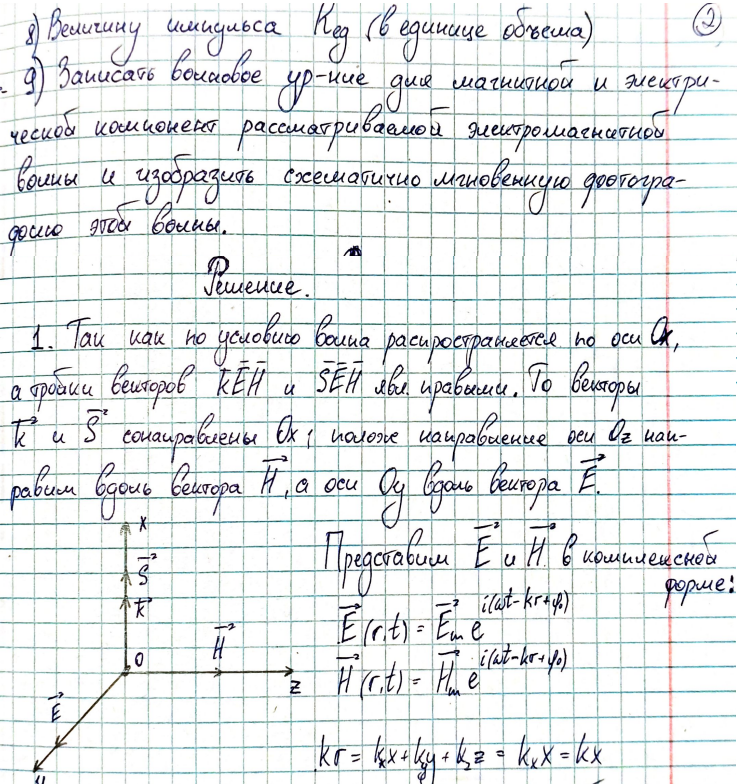 2
8) Величину импульса Kед (в единице объема)
9) Записать волновое ур-ние для магнитной и электри-
ческой компонент рассматриваемой электромагнитной
волны и изобразить схематично мгновенную фотогра-
фию этой волны.
Решение.
1. Так как по условию волна распространяется по оси Ox,
а тройки векторов k̄ĒH̄ и S̄ĒH̄ явл. правыми. То векторы
k⃗ и S⃗ сонаправлены Ox; полож направление оси Oz нап-
равим вдоль вектора H⃗, а оси Oy вдоль вектора E⃗.
Представим E⃗ и H⃗ в комплексной
форме:
E⃗(r,t) = E⃗m e^i(ωt-kr+φ₀)
H⃗(r,t) = H⃗m e^i(ωt-kr+φ₀)
kr = kₓx + kyy + kzz = kₓx = kx
x
S⃗
k⃗
H⃗
O
z
E⃗
y